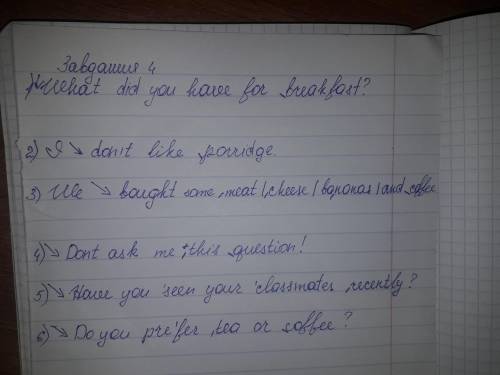 Завдання 4
1) What did you have for breakfast?
2) I ↘ don't like porridge.
3) We ↘ bought some meat | cheese | bananas | and coffee
4) ↘ Dont ask me this question!
5) ↘ Have you 'seen your 'classmates recently?
6) ↘ Do you pre'fer tea or coffee?